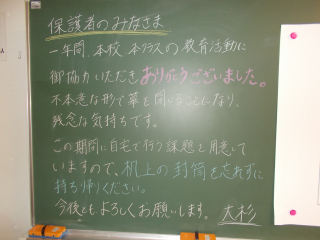 保護者のみなさま
一年間、本校 本クラスの教育活動に
御協力いただき ありがとうございました。
不本意な形で幕を閉じることになり、
残念な気持ちです。
この期間に自宅で行う課題を用意して
いますので、机上の封筒を忘れずに
持ち帰りください。
今後ともよろしくお願いします。 大杉